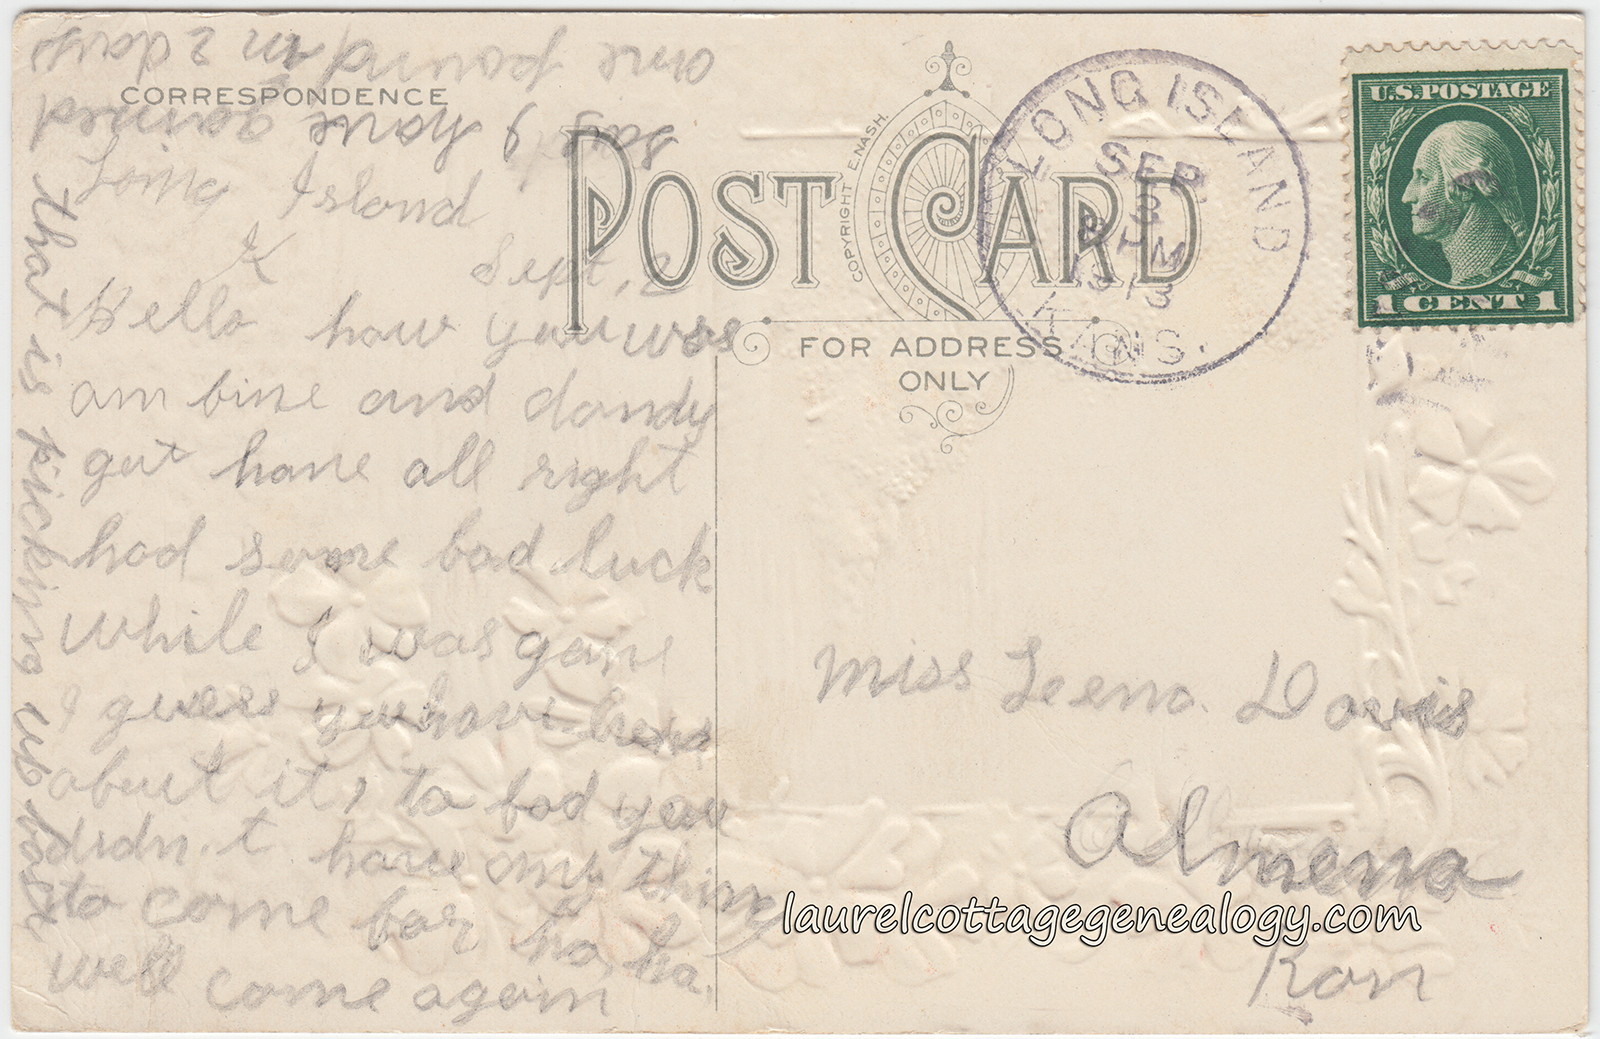 CORRESPONDENCE
POST CARD
COPYRIGHT E.NASH.
FOR ADDRESS
ONLY
LONG ISLAND
SEP
3
8 PM
1913
KANS.
U.S. POSTAGE
1 CENT 1
Long Island
K
Sept, 2
Hello how you was
am bine and dandy
got home all right
had some bad luck
while I was gone
I guess you have
about it, to bad you
didn't have any thing
to come bor ha, ha,
well come again
say I have gained
one pound in 2 days
that is picking up bast
Miss Leena. Davis
Almena
Kan
laurelcottagegenealogy.com